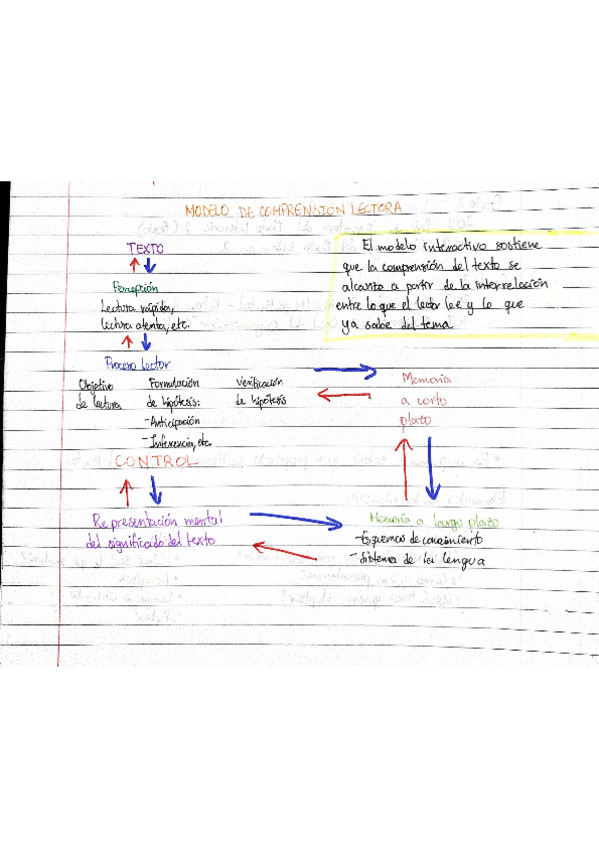 MODELO DE COMPRENSION LECTORA
TEXTO
Percepción
Lectura rápida,
lectura atenta, etc.
El modelo interactivo sostiene
que la comprensión del texto se
alcanza a partir de la interrelación
entre lo que el lector lee y lo que
ya sabe del tema
Proceso lector
Objetivo de lectura
Formulación de hipótesis:
-Anticipación
-Inferencia, etc.
Verificación de hipótesis
Memoria
a corto
plazo
CONTROL
Representación mental
del significado del texto
Memoria a largo plazo
-Esquemas de conocimiento
-Sistema de la lengua